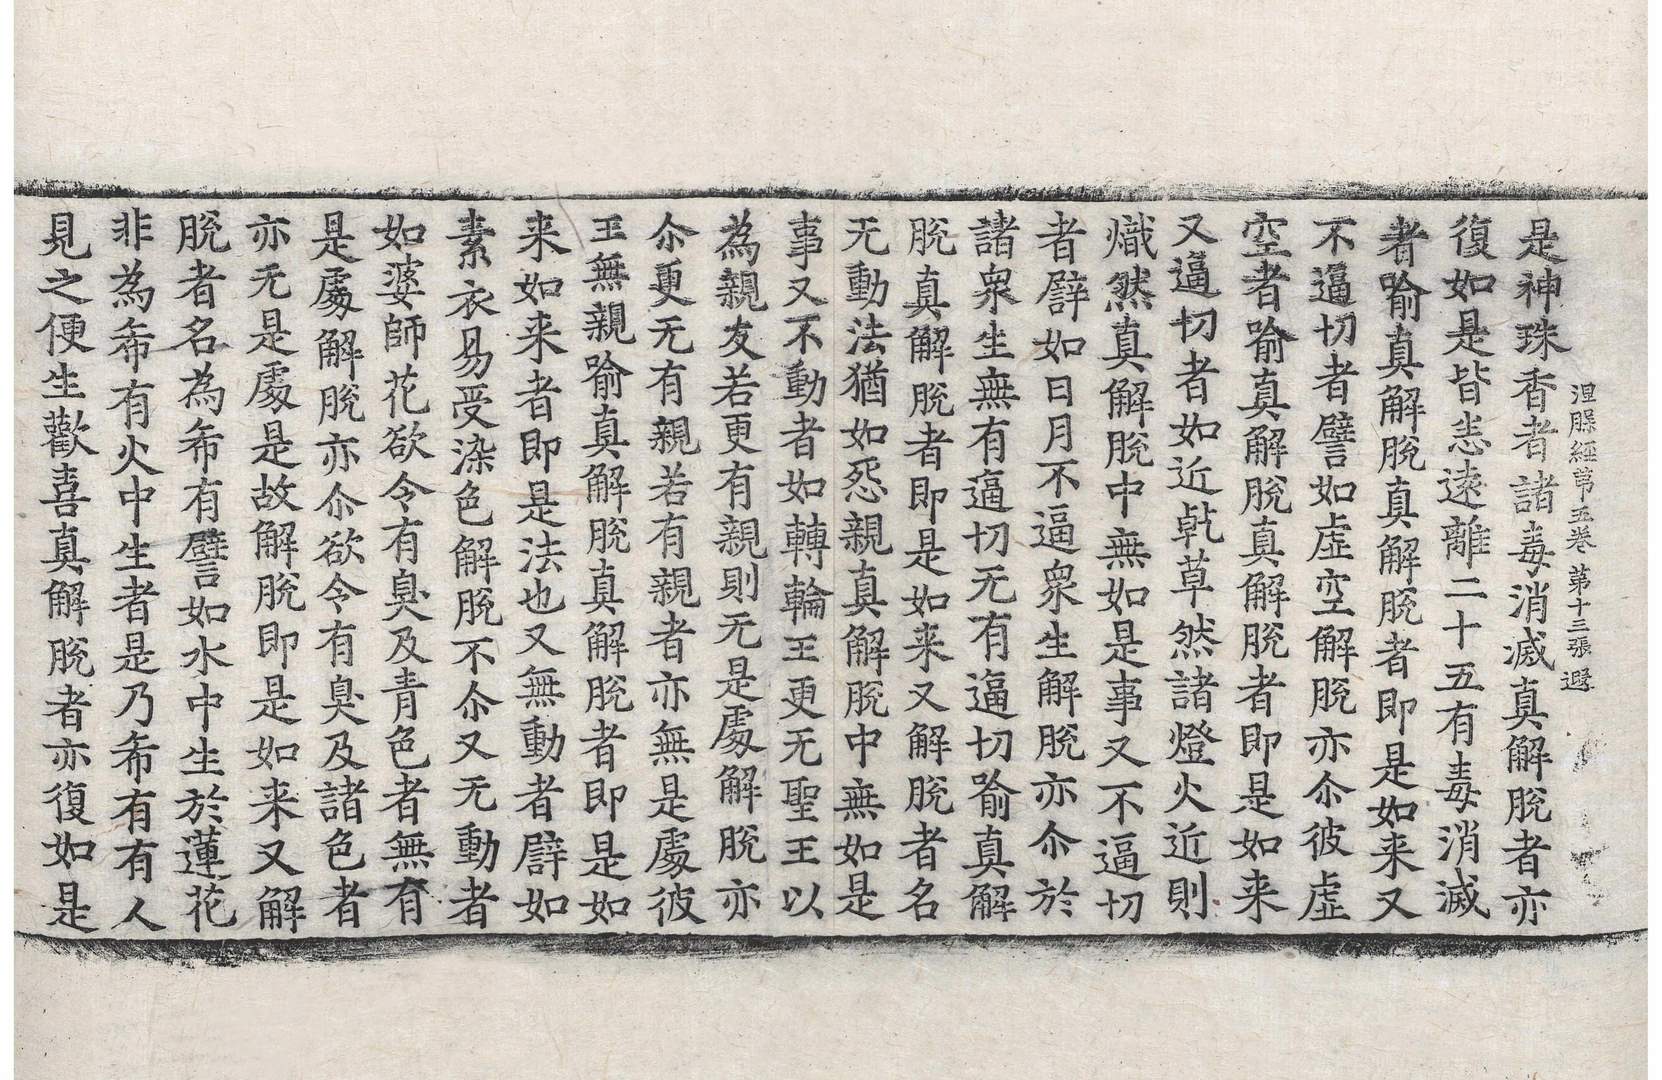 涅槃經第五卷 第十三張 遐
是神珠香者諸毒消滅真解脫者亦
復如是皆悉遠離二十五有毒消滅
者喻真解脫真解脫者即是如来又
不逼切者譬如虛空解脫亦尒彼虛
空者喻真解脫真解脫者即是如来
又逼切者如近乹草然諸燈火近則
熾然真解脫中無如是事又不逼切
者譬如日月不逼衆生解脫亦尒於
諸衆生無有逼切无有逼切喻真解
脫真解脫者即是如来又解脫者名
无動法猶如怨親真解脫中無如是
事又不動者如轉輪王更无聖王以
為親友若更有親則无是處解脫亦
尒更无有親若有親者亦無是處彼
王無親喻真解脫真解脫者即是如
来如来者即是法也又無動者譬如
素衣易受染色解脫不尒又无動者
如婆師花欲令有臭及青色者無有
是處解脫亦尒欲令有臭及諸色者
亦无是處是故解脫即是如来又解
脫者名為希有譬如水中生於蓮花
非為希有火中生者是乃希有有人
見之便生歡喜真解脫者亦復如是